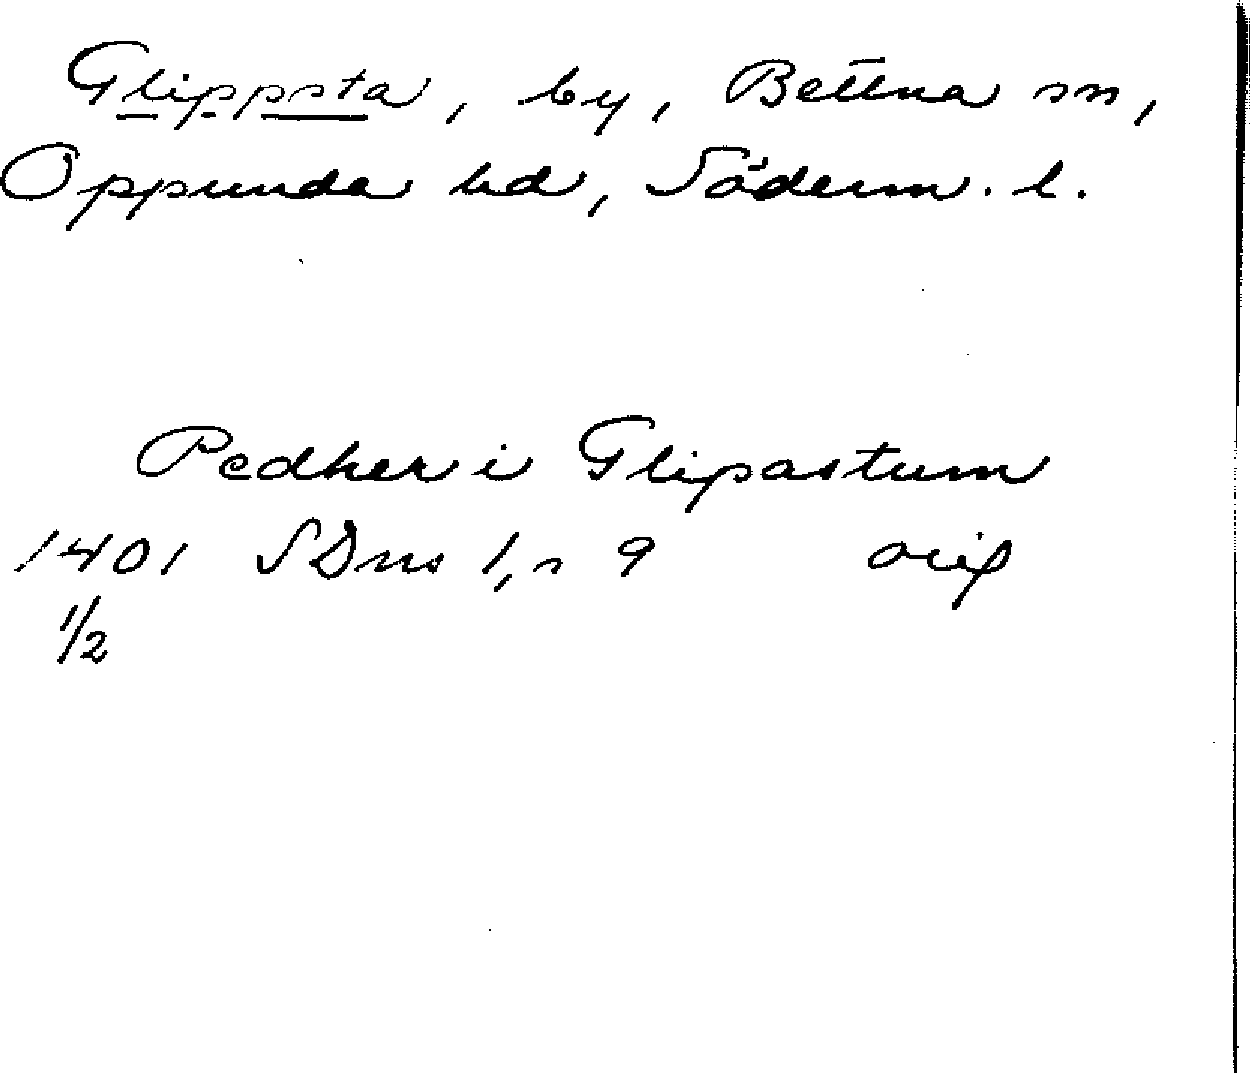 Glippsta, by, Bettna sn,
Oppunda hd, Söderm. l.
Pedher i Glipastum
1401 SDns 1, s 9 orig
1/2